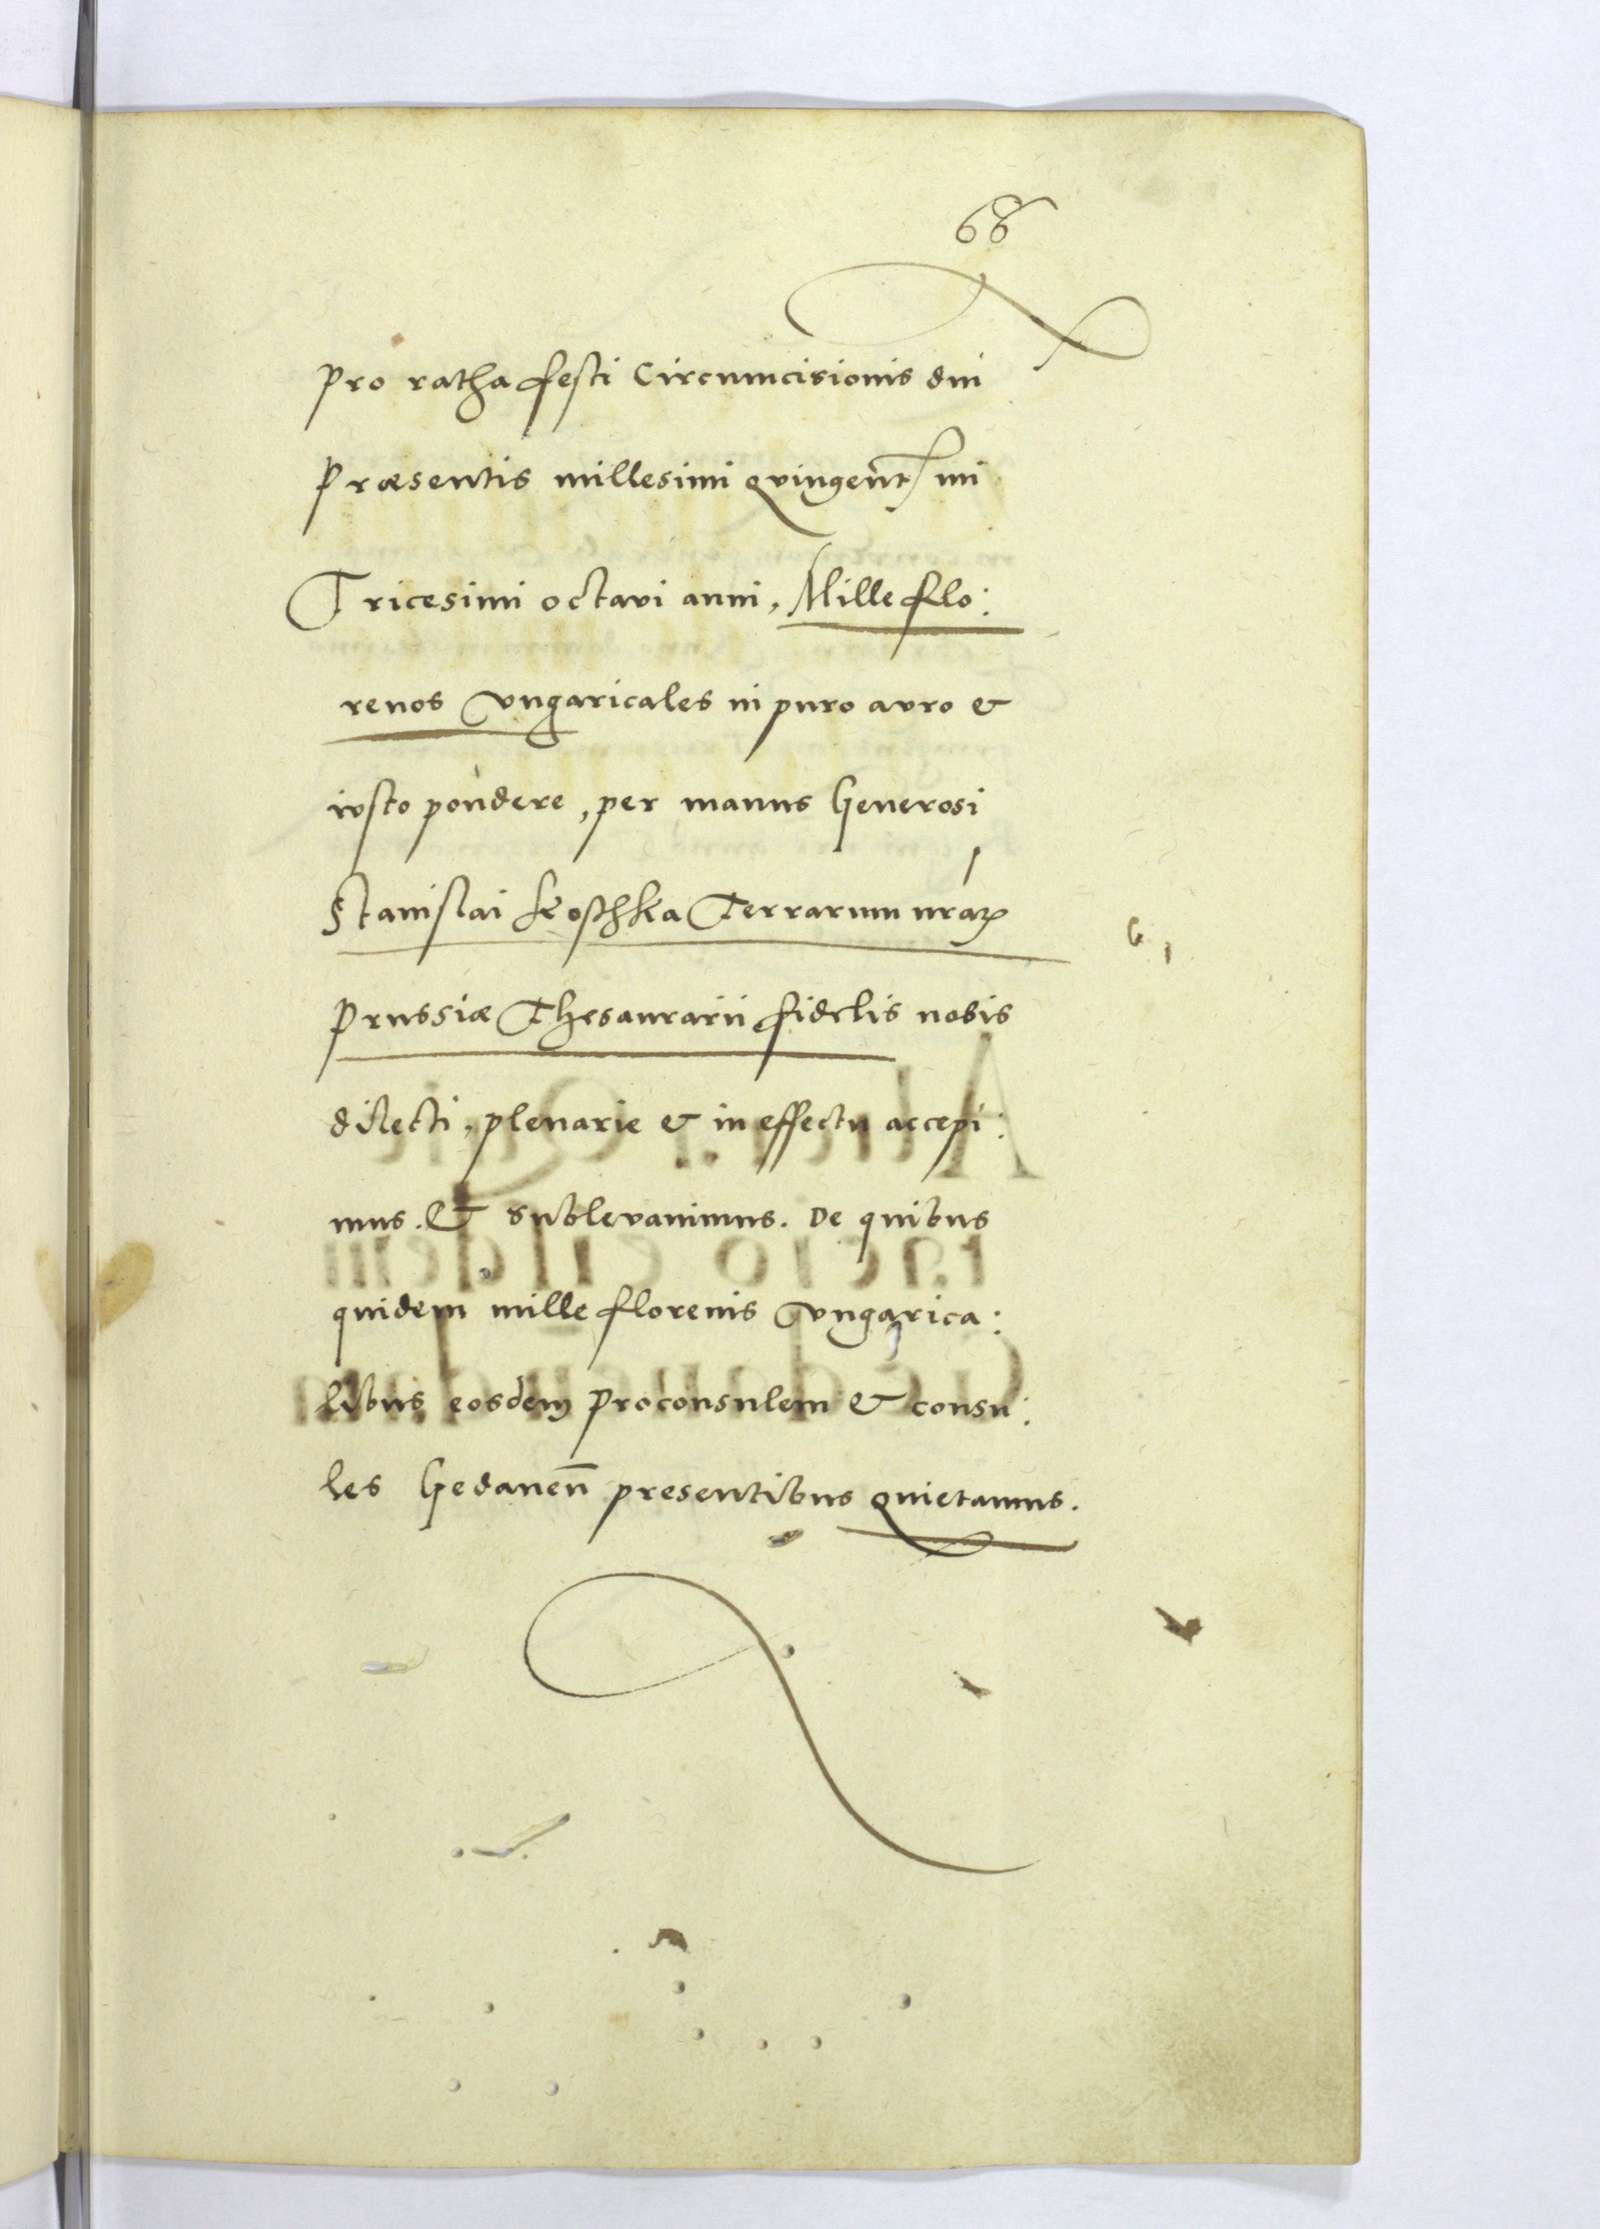 68
Pro ratha festi Circumcisionis dni
Præsentis millesimi qvingent mi
Tricesimi octavi anni, Mille flo:
renos vngaricales in puro avro &
ivsto pondere, per manus Generosi
Stanislai Koschka Terrarum nrarꝫ
Prussiæ Thesaurarii fidelis nobis
dilecti, plenarie & in effectu accepi:
mus. & sublevauimus. De quibus
quidem mille florenis vngarica:
libus eosdem Proconsulem & consu:
les Gedanen̄ presentibus quietamus.